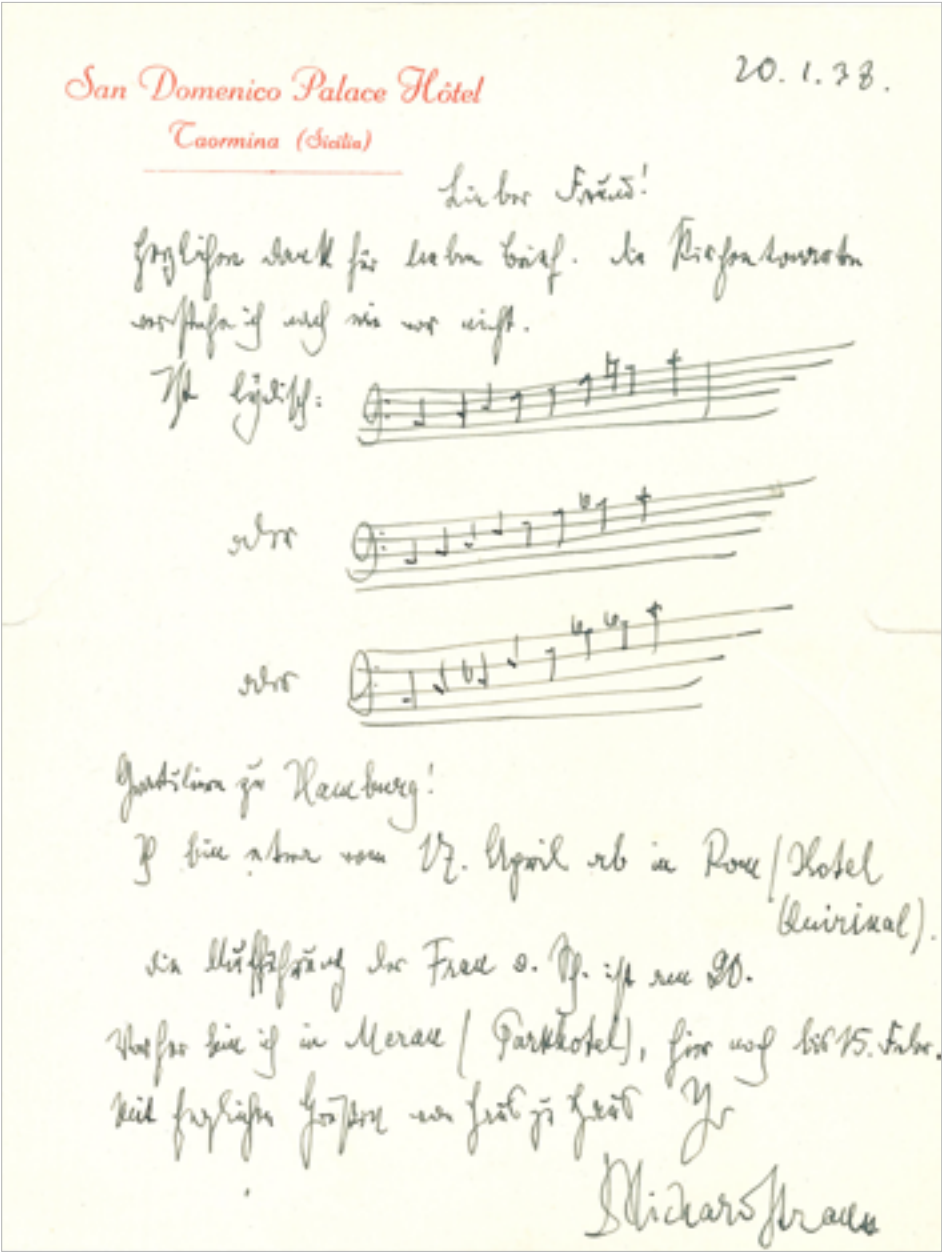 San Domenico Palace Hôtel
Taormina (Sicilia)
20. 1. 38.
Lieber Freund!
Herzlichen Dank für lieben Brief. Die Kirchentonarten
verstehe ich nach wie vor nicht.
Ist lydisch:
oder
oder
Gratuliere zu Hamburg!
Ich bin etwa vom 17. April ab in Rom (Hotel
Quirinal).
die Aufführung der Frau o. Sch. ist am 20.
Vorher bin ich in Meran (Parkhotel), hier noch bis 15. Febr.
Mit herzlichen Grüßen von Haus zu Haus Ihr
Richard Strauss